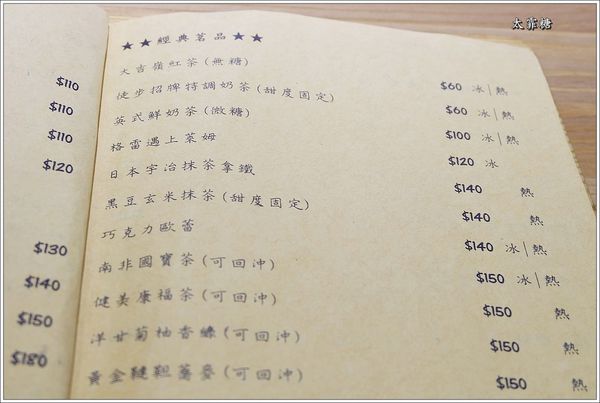 太菲糖
$110
$110
$110
$120
$130
$140
$150
$180
★★經典茗品★★
大吉嶺紅茶(無糖) $60 冰|熱
徒步招牌特調奶茶(甜度固定) $60 冰|熱
英式鮮奶茶(微糖) $100 冰|熱
格雷遇上萊姆 $120 冰
日本宇治抹茶拿鐵 $140 熱
黑豆玄米抹茶(甜度固定) $140 熱
巧克力歐蕾 $140 冰|熱
南非國寶茶(可回沖) $150 冰|熱
健美康福茶(可回沖) $150 熱
洋甘菊柚香綠(可回沖) $150 熱
黃金韃靼蕎麥(可回沖) $150 熱